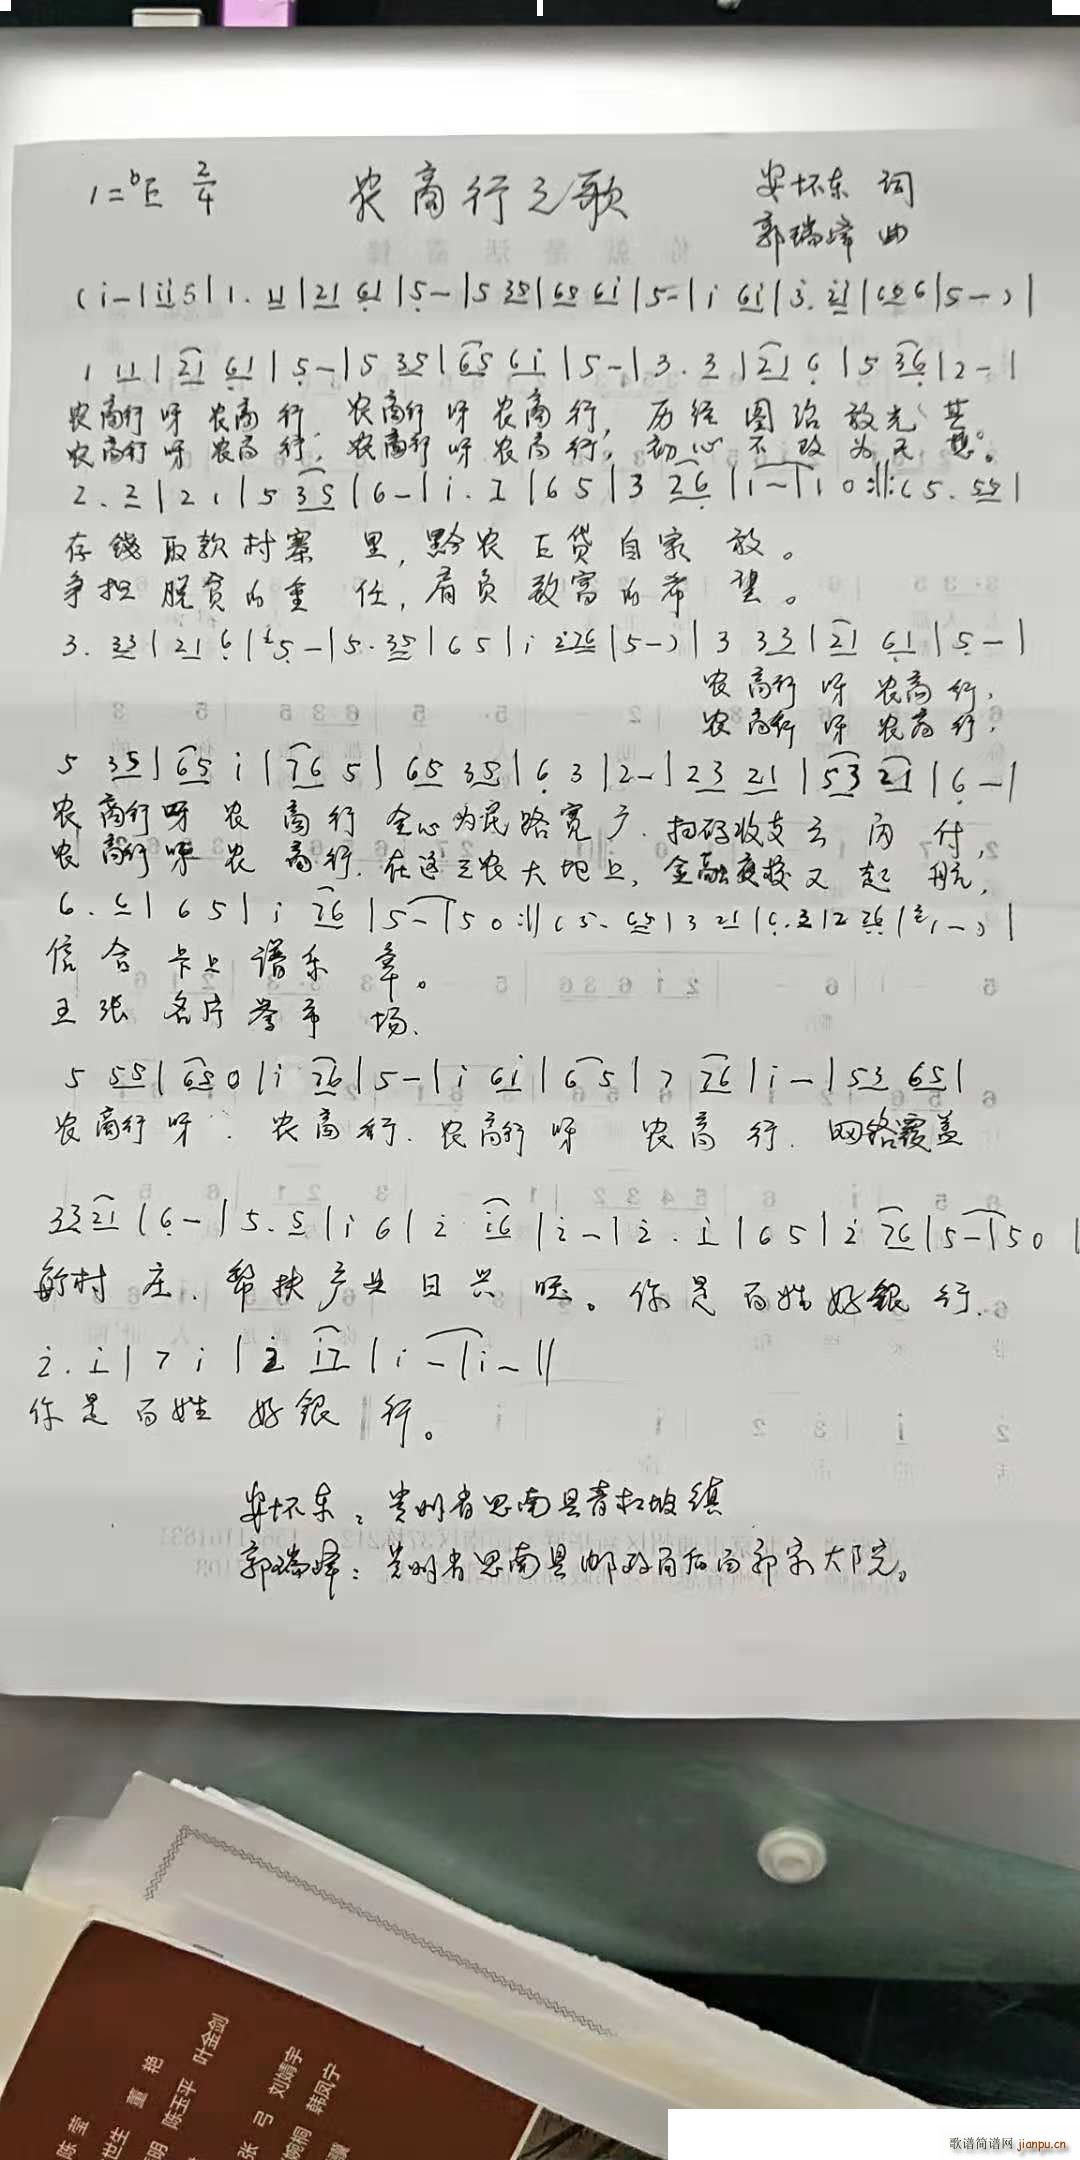 1=ᵇE 2/4 农商行之歌 安怀东 词
郭瑞峰 曲
(i-|ii5|1. 11|21 61|5-|5 35|65 6i|5-|i 6i|3. 2i|656|5-)|
1 11|21 61|5-|5 35|65 6i|5-|3. 3|21 6|5 36|2-|
农商行呀农商行,农商行呀农商行,历经图治放光
农商行呀农商行,农商行呀农商行,初心不改为民想。
2. 2|21|5 35|6-|i. i|65|3 26|1-|10:||:(5. 55|
存钱取款村寨里,黔农E贷自家放。
争担脱贫的重任,肩负致富的希望。
3. 33|21 6|5-|5. 35|65|i i76|5-)|3 33|21 61|5-|
农商行呀农商行,
农商行呀农商行,
5 35|65 i|76 5|65 35|6 3|2-|23 21|53 21|6-|
农商行呀农商行全心为民路宽广.扫码收支云闪付,
农商行呀农商行.在这三农大地上,金融夜校又起航,
6. 6|65|i 76|5-|50:||(5. 65|3 21|6. 2|2 76|1-)|
信合卡上谱乐章。
王张名片誉市场.
5 55|650|i 76|5-|i 6i|65|7 76|i-|53 65|
农商行呀.农商行.农商行呀农商行.网络覆盖
33 21|6-|5. 5|i6|2 i6|2-|2. i|65|2 76|5-|50|
新村庄.帮扶产业日兴旺。你是百姓好银行.
2. i|7i|2 i7|i-|i-||
你是百姓好银行。
安怀东:贵州省思南县青杠坡镇
郭瑞峰:贵州省思南县邮政局后面郭家大院。
陈莹
世生 董艳
明 陈玉平 叶金剑
张弓 刘靖宇
婉桐 韩凤宁
歌谱简谱网 jianpu.cn